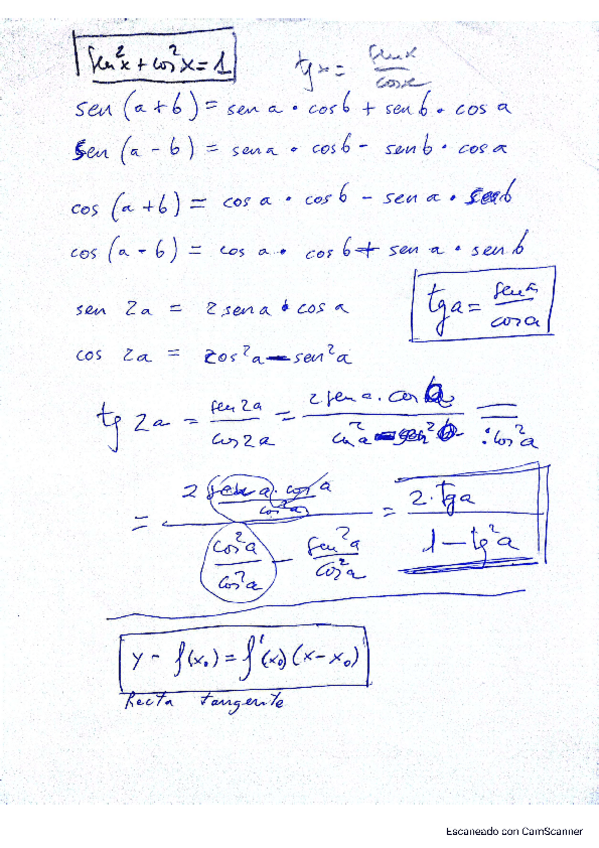 sen²x + cos²x = 1
tg x = sen x / cos x
sen (a + b) = sen a · cos b + sen b · cos a
sen (a - b) = sen a · cos b - sen b · cos a
cos (a + b) = cos a · cos b - sen a · sen b
cos (a - b) = cos a · cos b + sen a · sen b
sen 2a = 2 sen a · cos a
tg a = sen a / cos a
cos 2a = cos²a - sen²a
tg 2a = sen 2a / cos 2a = 2 sen a · cos a / cos²a - sen²a = : cos²a
= 2 sen a · cos a / cos²a / cos²a / cos²a - sen²a / cos²a = 2 · tg a / 1 - tg²a
y - f(x₀) = f'(x₀) (x - x₀)
Recta tangente
Escaneado con CamScanner